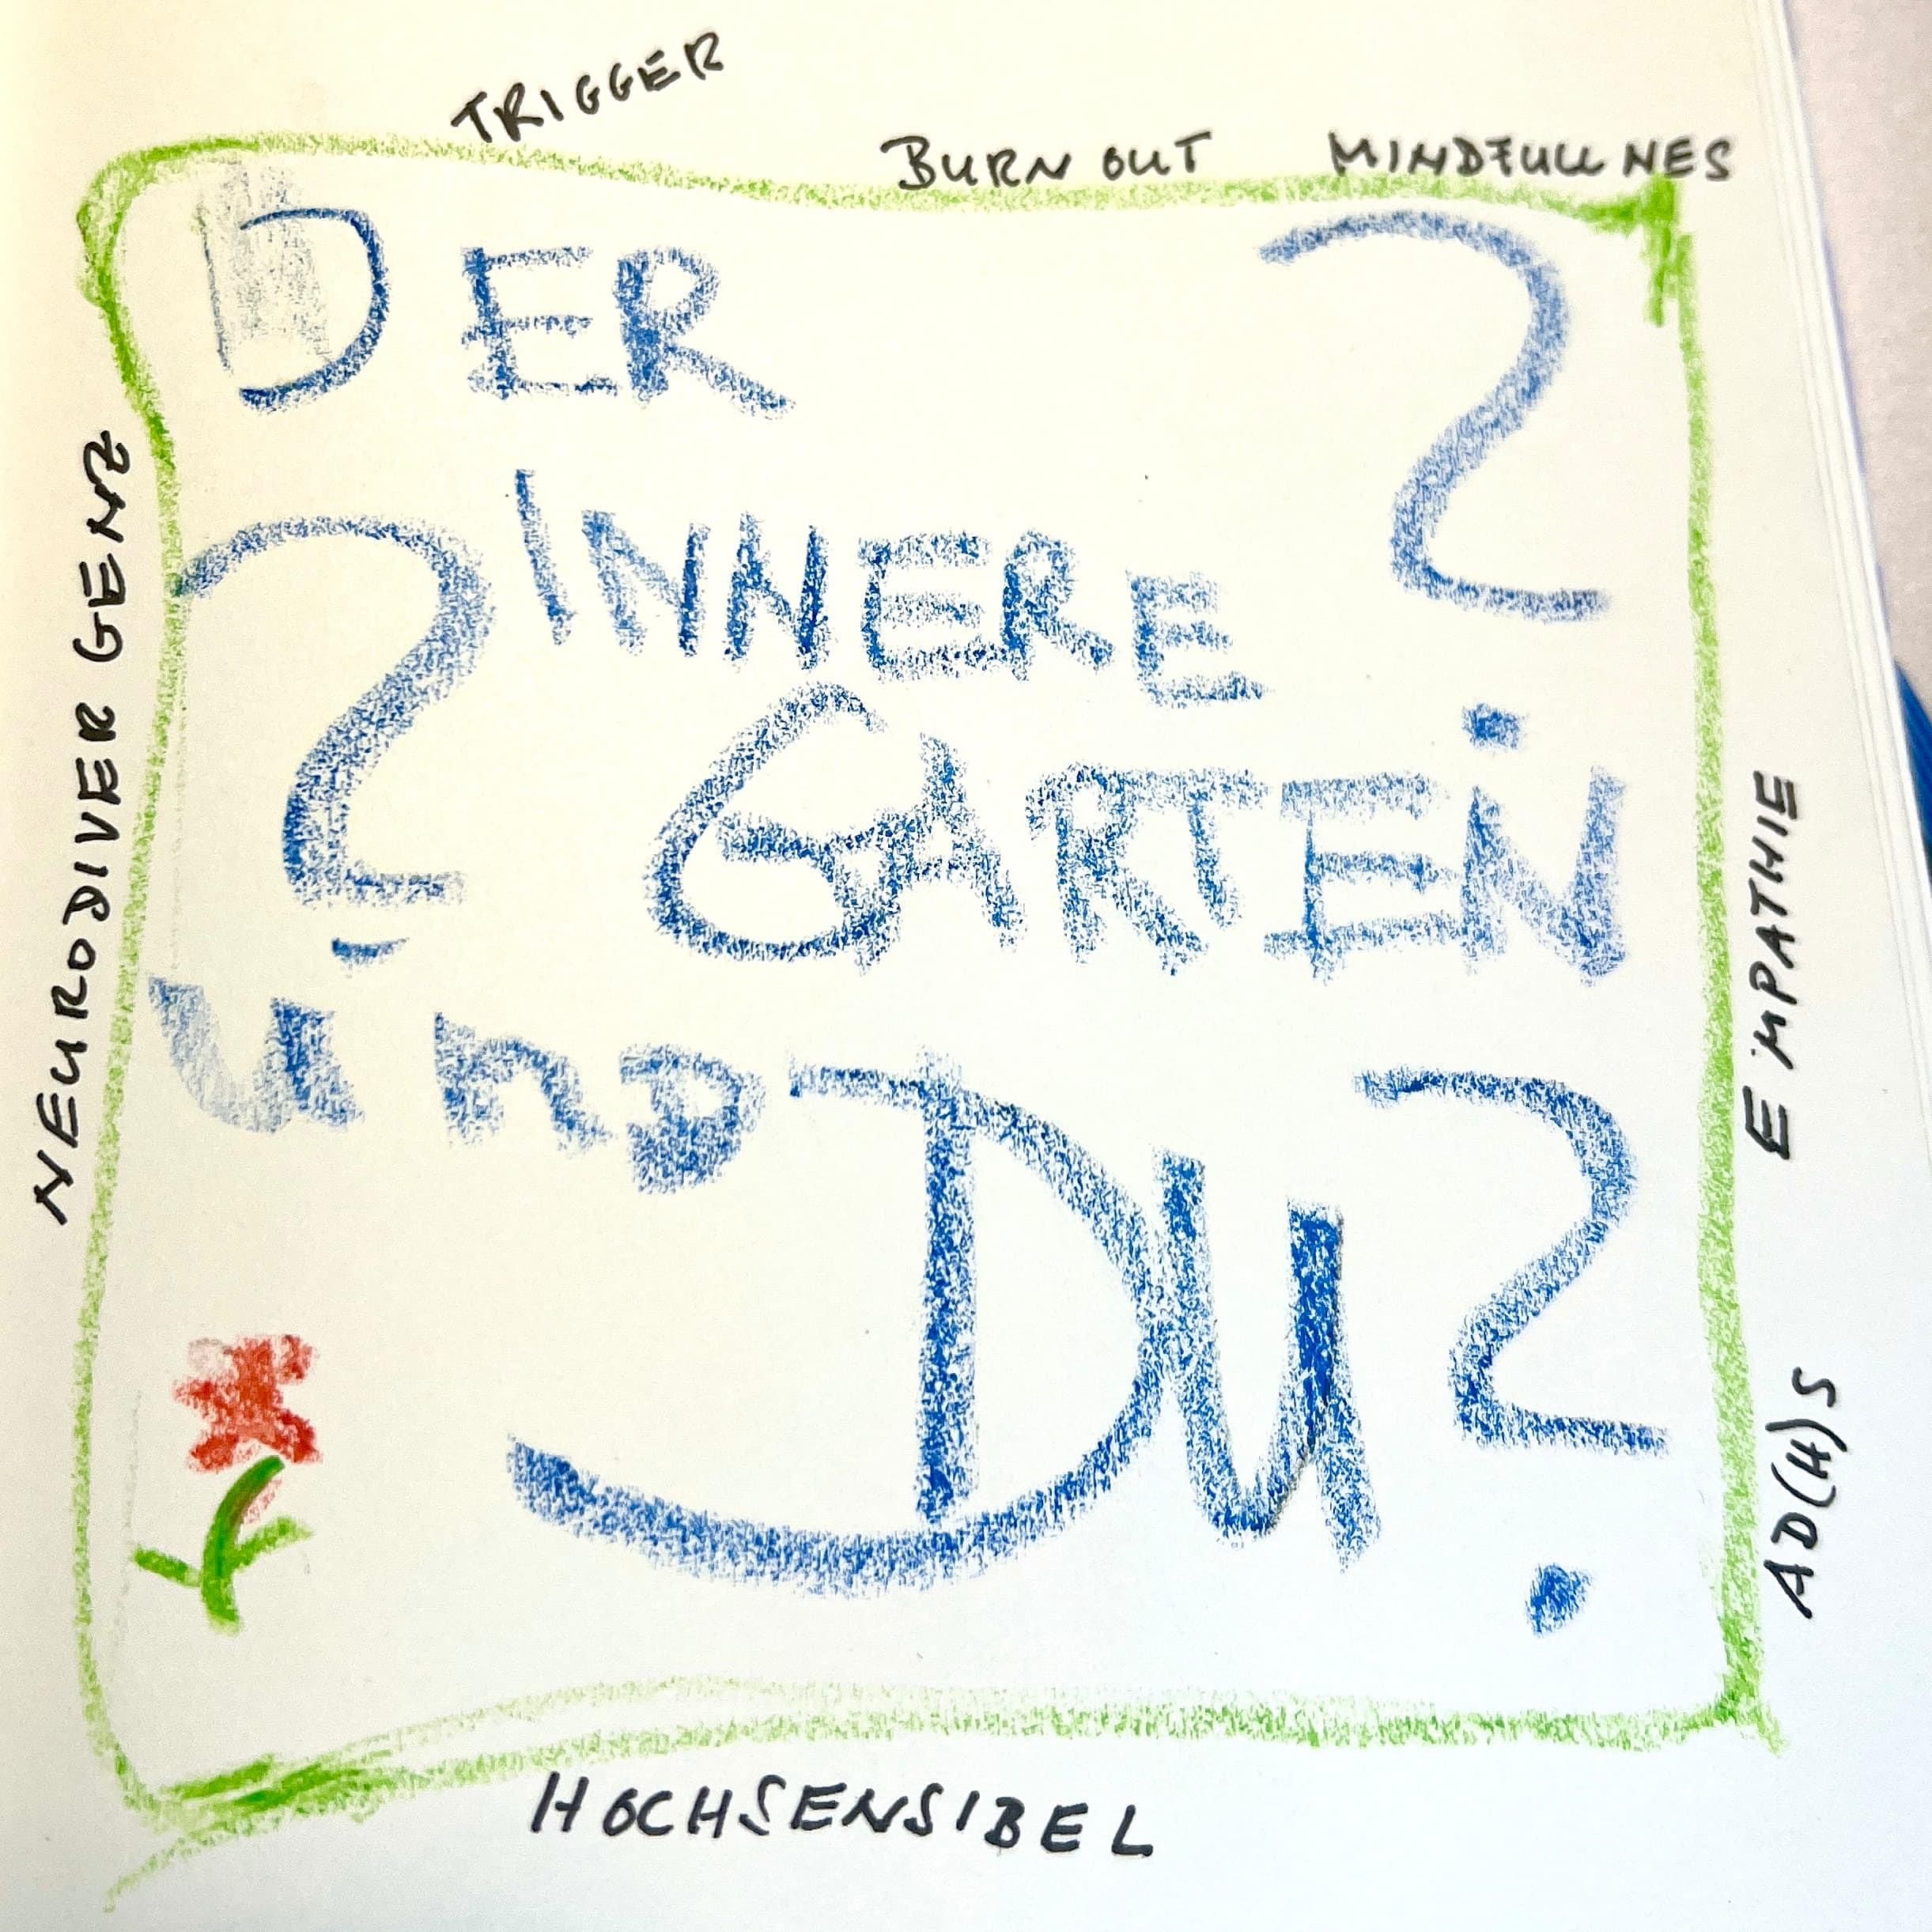 TRIGGER
BURN OUT
MINDFULLNES
DER ?
INNERE
? GARTEN
unD DU?
NEURODIVERGENZ
EMPATHIE
AD(H)S
HOCHSENSIBEL